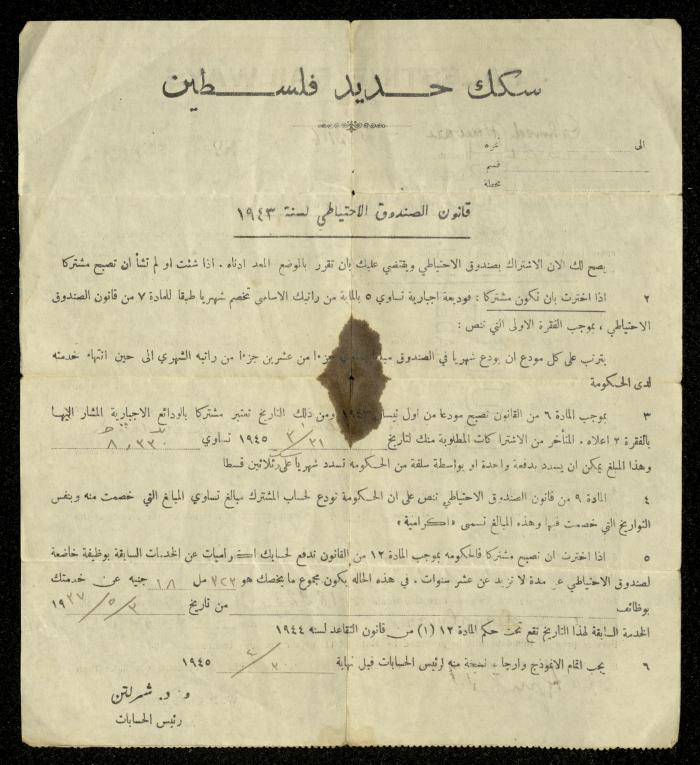 سكك حديد فلسطين
الى
نمره
قسم
محطة
قانون الصندوق الاحتياطي لسنة ١٩٤٣
يصح لك الان الاشتراك بصندوق الاحتياطي ويقتضي عليك بان تقرر بالموضع المعد ادناه . اذا شئت او لم تشأ ان تصبح مشتركا
٢ اذا اخترت بان تكون مشتركا : فوديعة اجبارية تساوي ٥ بالماية من راتبك الاساسي تخصم شهريا طبقا للمادة ٧ من قانون الصندوق
الاحتياطي ، بموجب الفقرة الاولى التي تنص :
يترتب على كل مودع ان يودع شهريا في الصندوق جزءا من عشرين جزءا من راتبه الشهري الى حين انتهاء خدمته
لدى الحكومة
٣ بموجب المادة ٦ من القانون تصبح مودعا من اول نيسان ١٩٤٣ ومن ذلك التاريخ تعتبر مشتركا بالودائع الاجبارية المشار اليها
بالفقرة ٢ اعلاه . المتأخر من الاشتراكات المطلوبة منك لتاريخ ٣١/٣ ١٩٤٥ تساوي ٨,٣٣٠
وهذا المبلغ يمكن ان يسدد بدفعة واحدة او بواسطة سلفة من الحكومه تسدد شهريا على ثلاثين قسطا
٤ المادة ٩ من قانون الصندوق الاحتياطي تنص على ان الحكومة تودع لحساب المشترك مبالغ تساوي المبالغ التي خصمت منه وبنفس
التواريخ التي خصمت فيها وهذه المبالغ تسمى «اكرامية»
٥ اذا اخترت ان تصبح مشتركا فالحكومه بموجب المادة ١٢ من القانون تدفع لحسابك اكراميات عن الخدمات السابقة بوظيفة خاضعة
لصندوق الاحتياطي عن مدة لا تزيد عن عشر سنوات . في هذه الحاله يكون مجموع ما يخصك هو ٣٢٢ مل ١٨ جنيه عن خدمتك
بوظائف من تاريخ ٣/٥/١٩٣٧
الخدمة السابقة لهذا التاريخ تقع تحت حكم المادة ١٢ (١) من قانون التقاعد لسنه ١٩٤٤
٦ يجب اتمام الانموذج وارجاع نسخة منه لرئيس الحسابات قبل نهاية ١٩٤٥
و . د . شرلتن
رئيس الحسابات